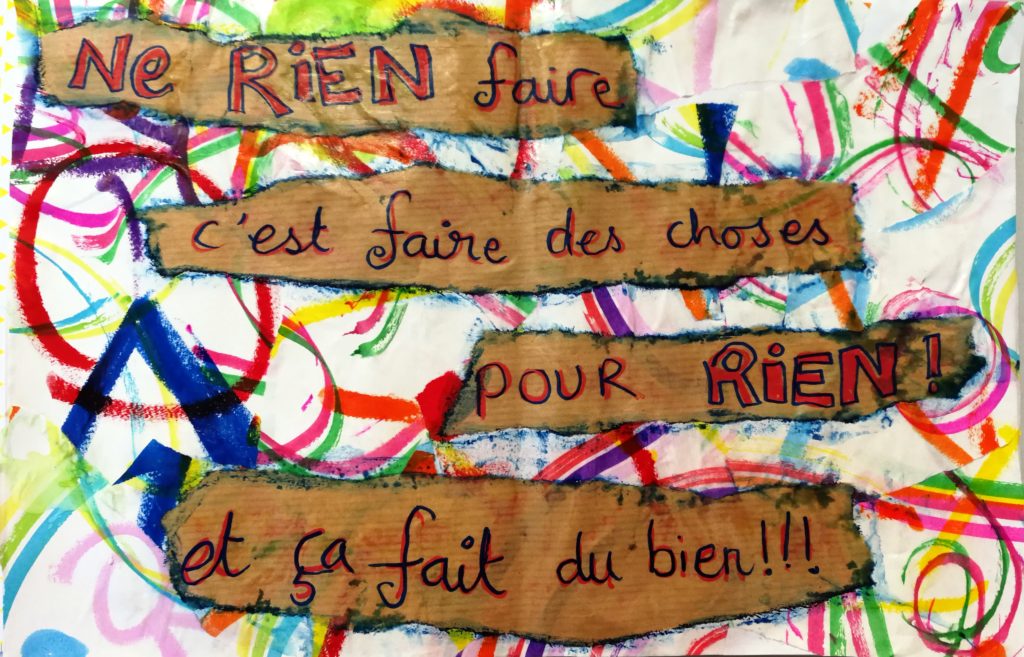 Ne RiEN faire
c'est faire des choses
POUR RiEN !
et ça fait du bien!!!